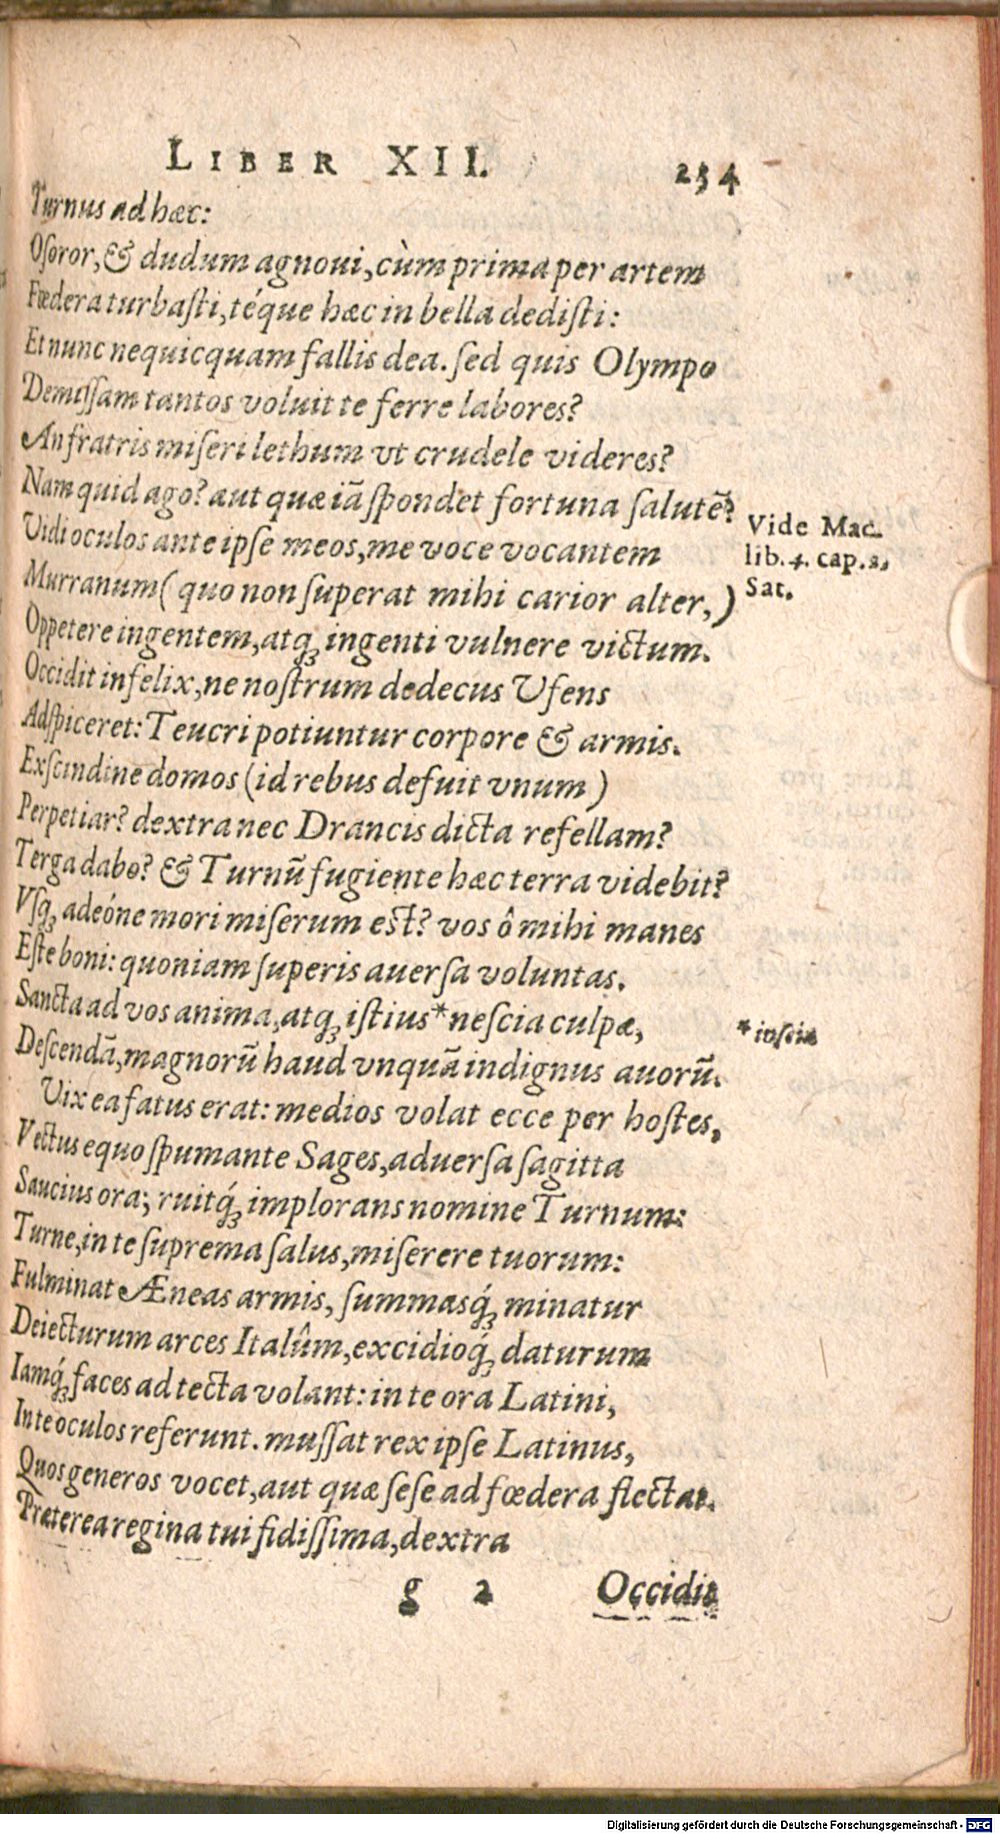 LIBER XII. 254
Turnus ad hæc:
O soror, & dudum agnoui, cùm prima per artem
Fœdera turbaſti, téque hæc in bella dediſti:
Et nunc nequicquam fallis dea. ſed quis Olympo
Demiſſam tantos voluit te ferre labores?
An fratris miſeri lethum vt crudele videres?
Nam quid ago? aut quæ iā ſpondet fortuna ſalutē?
Vidi oculos ante ipſe meos, me voce vocantem
Murranum (quo non ſuperat mihi carior alter,)
Vide Mac.
lib. 4. cap. 2,
Sat.
Oppetere ingentem, atq; ingenti vulnere victum.
Occidit infelix, ne noſtrum dedecus Vfens
Adſpiceret: Teucri potiuntur corpore & armis.
Exſcindine domos (id rebus defuit vnum)
Perpetiar? dextra nec Drancis dicta refellam?
Terga dabo? & Turnū fugiente hæc terra videbit?
Vſq; adeóne mori miſerum eſt? vos ô mihi manes
Eſte boni: quoniam ſuperis auerſa voluntas.
Sancta ad vos anima, atq; iſtius* neſcia culpæ,
* inſcia
Deſcendā, magnorū haud vnquā indignus auorū.
Vix ea fatus erat: medios volat ecce per hoſtes,
Vectus equo ſpumante Sages, aduerſa ſagitta
Saucius ora; ruitq́; implorans nomine Turnum:
Turne, in te ſuprema ſalus, miſerere tuorum:
Fulminat Æneas armis, ſummasq́; minatur
Deiecturum arces Italûm, excidioq́; daturum
Iamq́; faces ad tecta volant: in te ora Latini,
In te oculos referunt. muſſat rex ipſe Latinus,
Quos generos vocet, aut quæ ſeſe ad fœdera flectat.
Præterea regina tui fidiſſima, dextra
g 2 Occidit
Digitalisierung gefördert durch die Deutsche Forschungsgemeinschaft - DFG